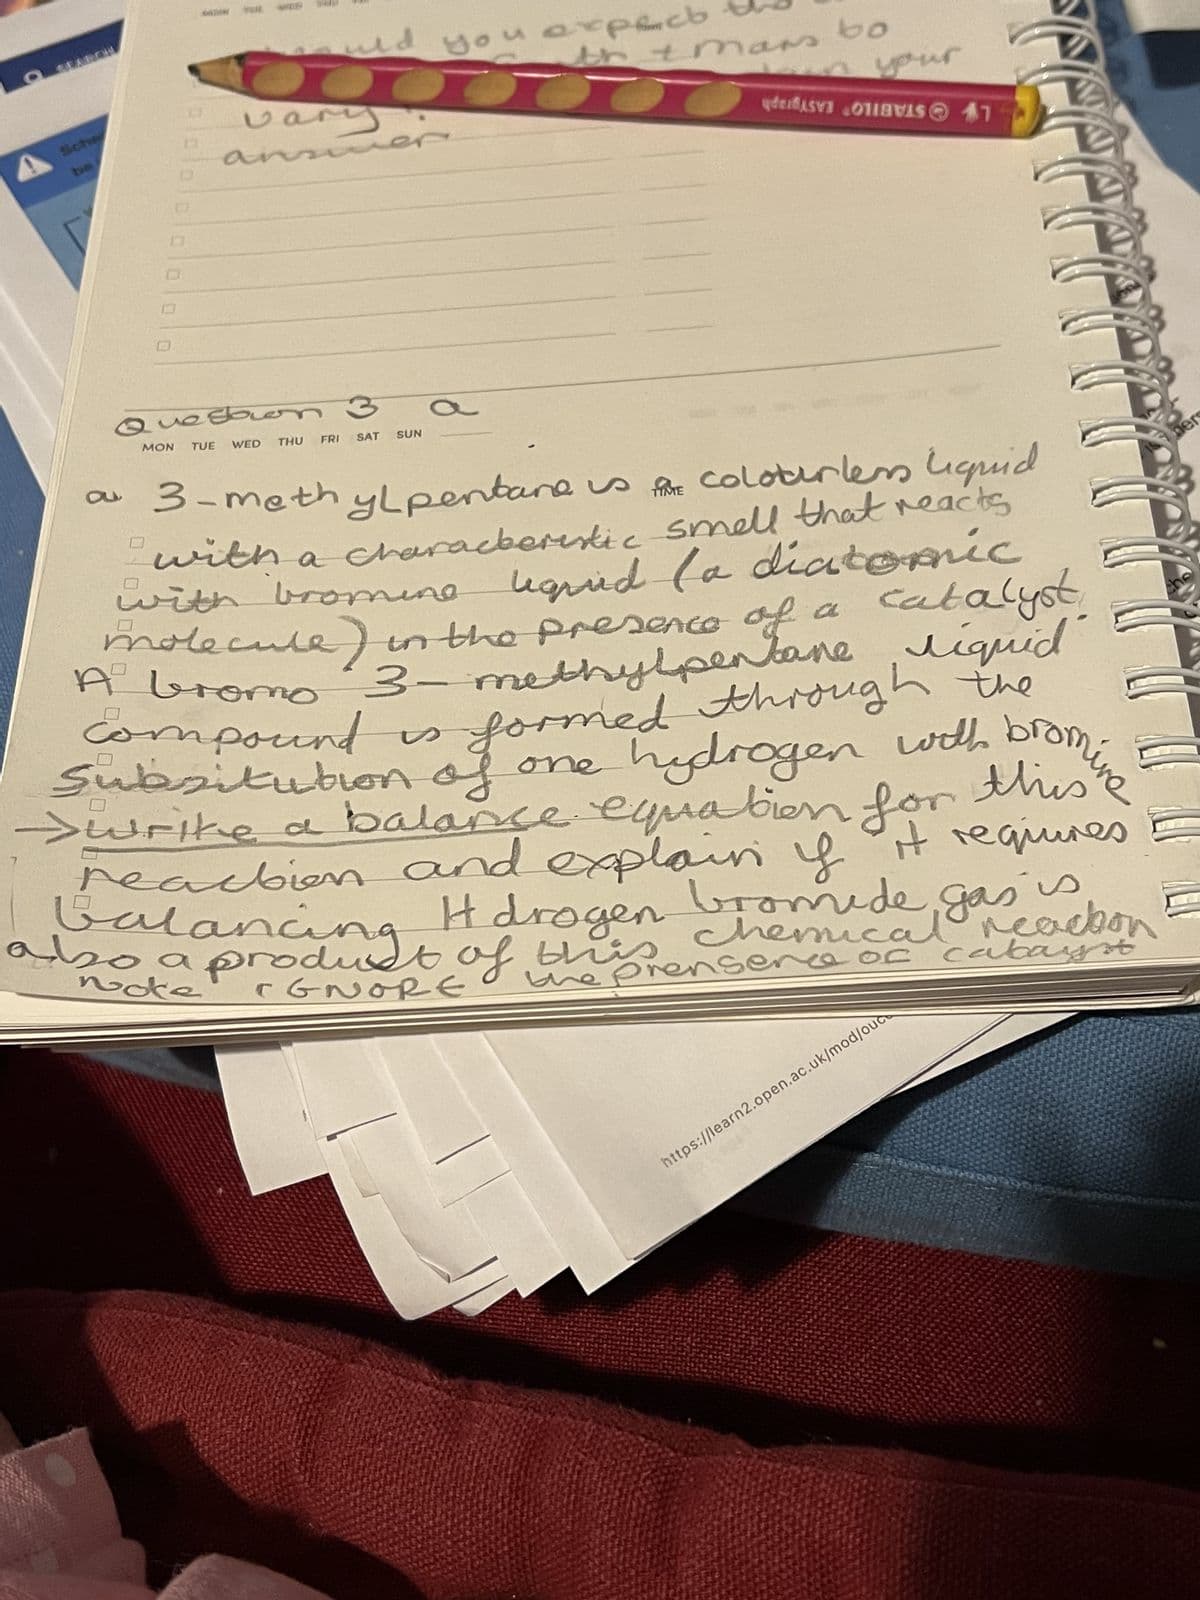 MON TUE WED THU
SEARCH
you expect the
+ mans to
your
vary?
answer
L STABILO® EASYgraph
Question 3 a
MON TUE WED THU FRI SAT SUN
a 3-methylpentane is a colourless liquid
TIME
with a characteristic smell that reacts
with bromine liquid (a diatomic
molecule) in the presence of a catalyst.
A bromo 3-methylpentane liquid
compound is formed through the
Subsitution of one hydrogen with bromine
→ write a balance equation for this
reaction and explain if it requires
balancing Hdrogen bromide gas is
also a product of this chemical reaction
note IGNORE the prensence of catayst
https://learn2.open.ac.uk/mod/ouc